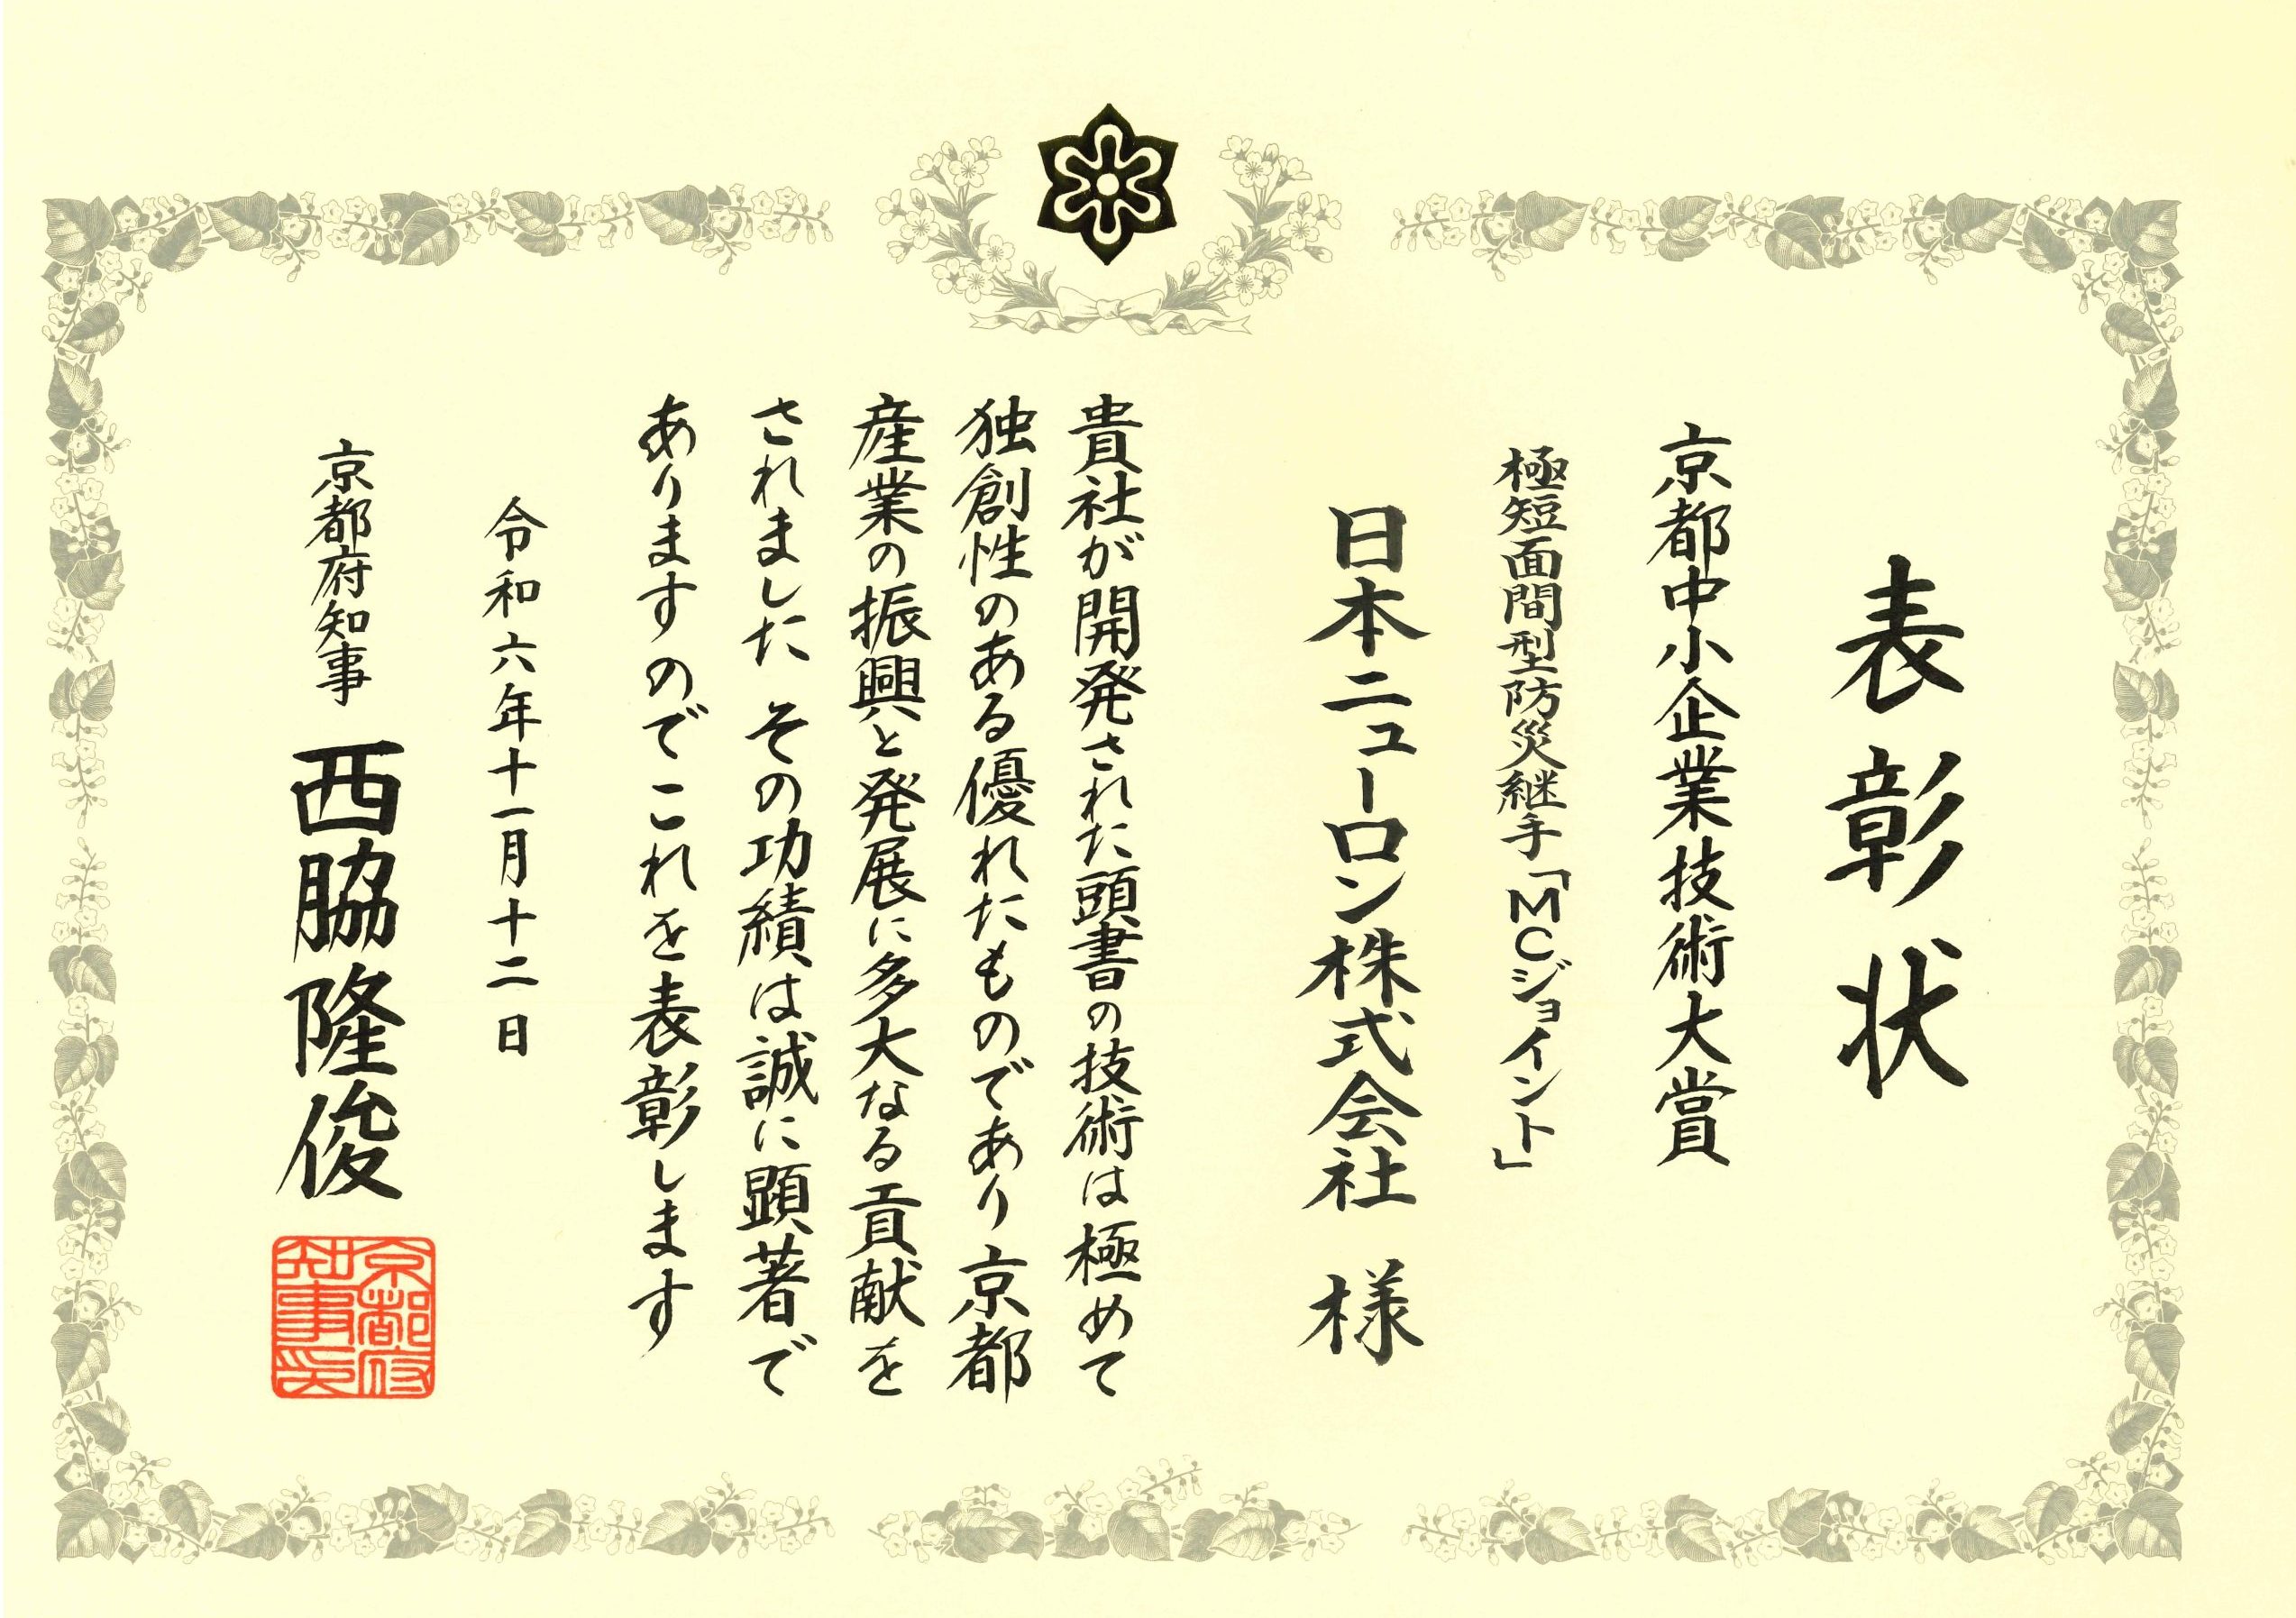 表彰状
京都中小企業技術大賞
極短面間型防災継手「MCジョイント」
日本ニューロン株式会社 様
貴社が開発された頭書の技術は極めて
独創性のある優れたものであり京都
産業の振興と発展に多大なる貢献を
されました その功績は誠に顕著で
ありますのでこれを表彰します
令和六年十一月十二日
京都府知事 西脇隆俊
京都府
知事印